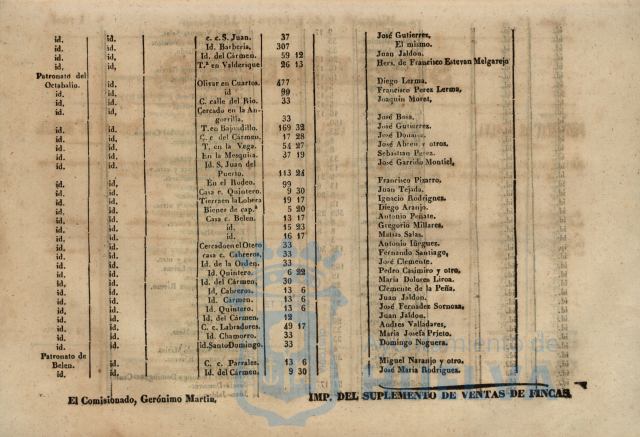 id. id. c. c. S. Juan. 37 José Gutierres.
id. id. Id. Barberia. 307 El mismo.
id. id. Id. del Cármen. 59 12 Juan Jaldon.
id. id. T.ª en Valderique 26 13 Hers. de Francisco Estevan Melgarejo
Patronato del
Octabalio. id. Olivar en Cuartos. 477 Diego Lerma.
id. id. id 99 Francisco Perez Lerma,
id. id. C. calle del Rio. 33 Joaquin Moret,
Cercado en la An-
gorrilla. 33 José Bosa.
id. id. T. en Bajondillo. 169 32 José Gutierrez.
id. id. C. c del Cármen. 17 28 José Donaire.
id. id. T. en la Vega. 54 27 José Abreu y otros.
id. id. En la Mesquita. 37 19 Sebastian Perez.
id. id. Id. S. Juan del José Garrido Montiel,
Puerto. 113 24
id. id. En el Rodeo. 99 Francisco Pizarro,
id. id. Casa c. Quintero. 9 30 Juan Tejada.
id. id. Tierra en la Lobera 19 17 Ignacio Rodriguez.
id. id. Bienes de cap.ª 5 20 Diego Araujo.
id. id. Casa c. Belen. 13 17 Antonio Peñate.
id. id. id. 15 23 Gregorio Millares,
id. id. id. 16 17 Matias Salas.
id. id. Cercado en el Otero 33 Antonio Iñrguez.
id. id. casa c. Cabreros. 33 Fernando Santiago,
id. id. Id. de la Orden. 33 José Clemente.
id. id. Id. Quintero. 6 22 Pedro Casimiro y otro,
id. id. Id. del Cármen. 30 Maria Dolores Liroa.
id. id. Id. Cabreros. 13 6 Clemente de la Peña.
id. id. Id. Carmen. 13 6 Juan Jaldon.
id. id. Id. Quintero. 13 6 José Fernadez Sornosa,
id. id. Id. del Cármen. 12 Juan Jaldon.
id. id. C. c. Labradores. 49 17 Andres Valladares,
id. id. Id. Chamorro. 33 Maria Josefa Prieto.
id. id. id. Santo Domingo. 33 Domingo Noguera.
Patronato de
Belen. id. C. c. Parrales. 13 6 Miguel Naranjo y otro.
id. id. Id. del Cármen. 9 30 José Maria Rodriguez.
El Comisionado, Gerónimo Martin. IMP. DEL SUPLEMENTO DE VENTAS DE FINCAS.
Ayuntamiento de
HUELVA